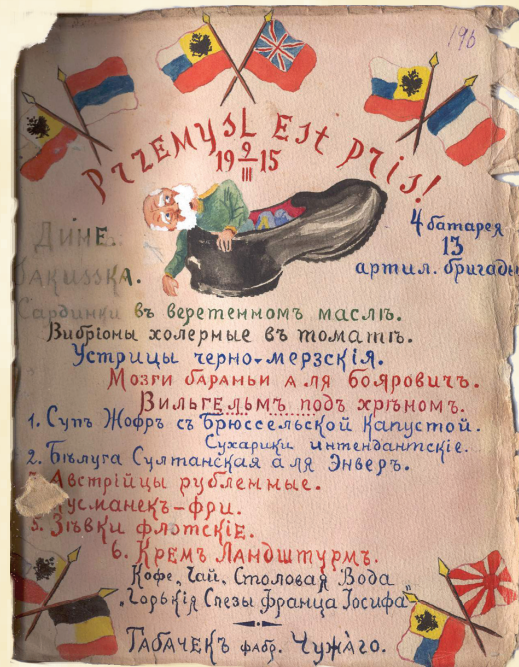 196
PRZEMYSL EST PRIS!
19 9/III 15
4 батарея
13
артил. бригады
Динѐ.
Закусска.
Сардинки въ веретенномъ маслѣ.
Вибріоны холерные въ томатѣ.
Устрицы черно-мерзскія.
Мозги бараньи а ля бояровичъ.
Вильгельмъ подъ хрѣномъ.
1. Супъ Жофръ съ Брюссельской капустой.
Сухарики интендантскіе.
2. Бѣлуга Султанская а ля Энверъ.
3. Австрійцы рубленные.
5. Зѣвки флотскіе.
6. Кремъ Ландштурмъ.
Кофе, Чай, Столовая Вода
"Горькія Слезы Франца Іосифа"
Табачекъ фабр. Чужаго.